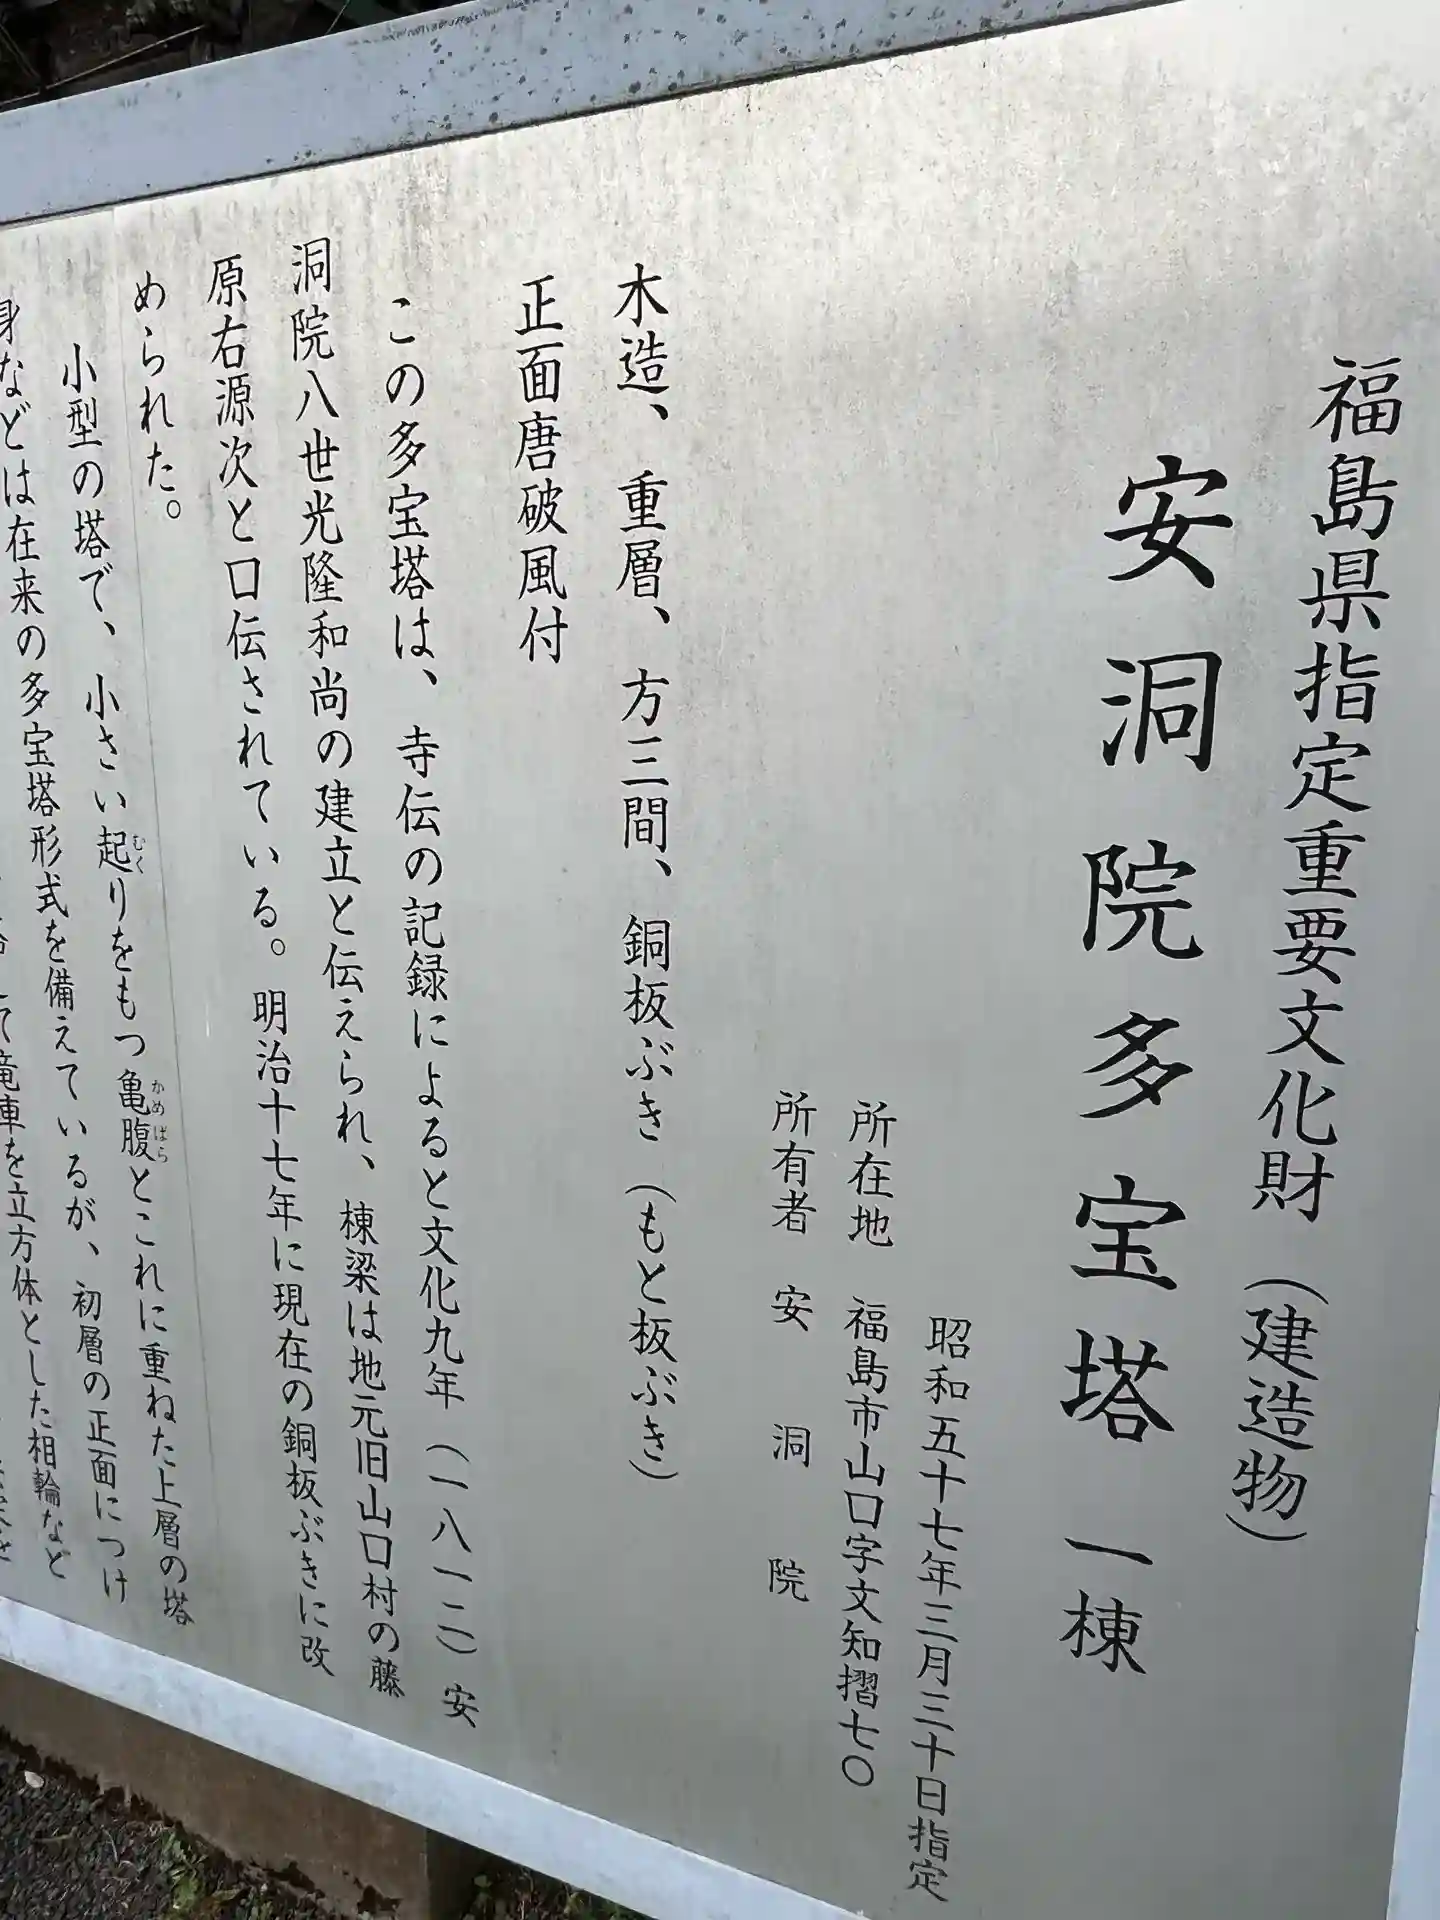 福島県指定重要文化財（建造物）
安洞院多宝塔 一棟
昭和五十七年三月三十日指定
所在地 福島市山口字文知摺七〇
所有者 安洞院
木造、重層、方三間、銅板ぶき（もと板ぶき）
正面唐破風付
この多宝塔は、寺伝の記録によると文化九年（一八一二）安
洞院八世光隆和尚の建立と伝えられ、棟梁は地元旧山口村の藤
原右源次と口伝されている。明治十七年に現在の銅板ぶきに改
められた。
小型の塔で、小さい起りをもつ亀腹とこれに重ねた上層の塔
むく
かめばら
身などは在来の多宝塔形式を備えているが、初層の正面につけ
竜車を立方体とした相輪など